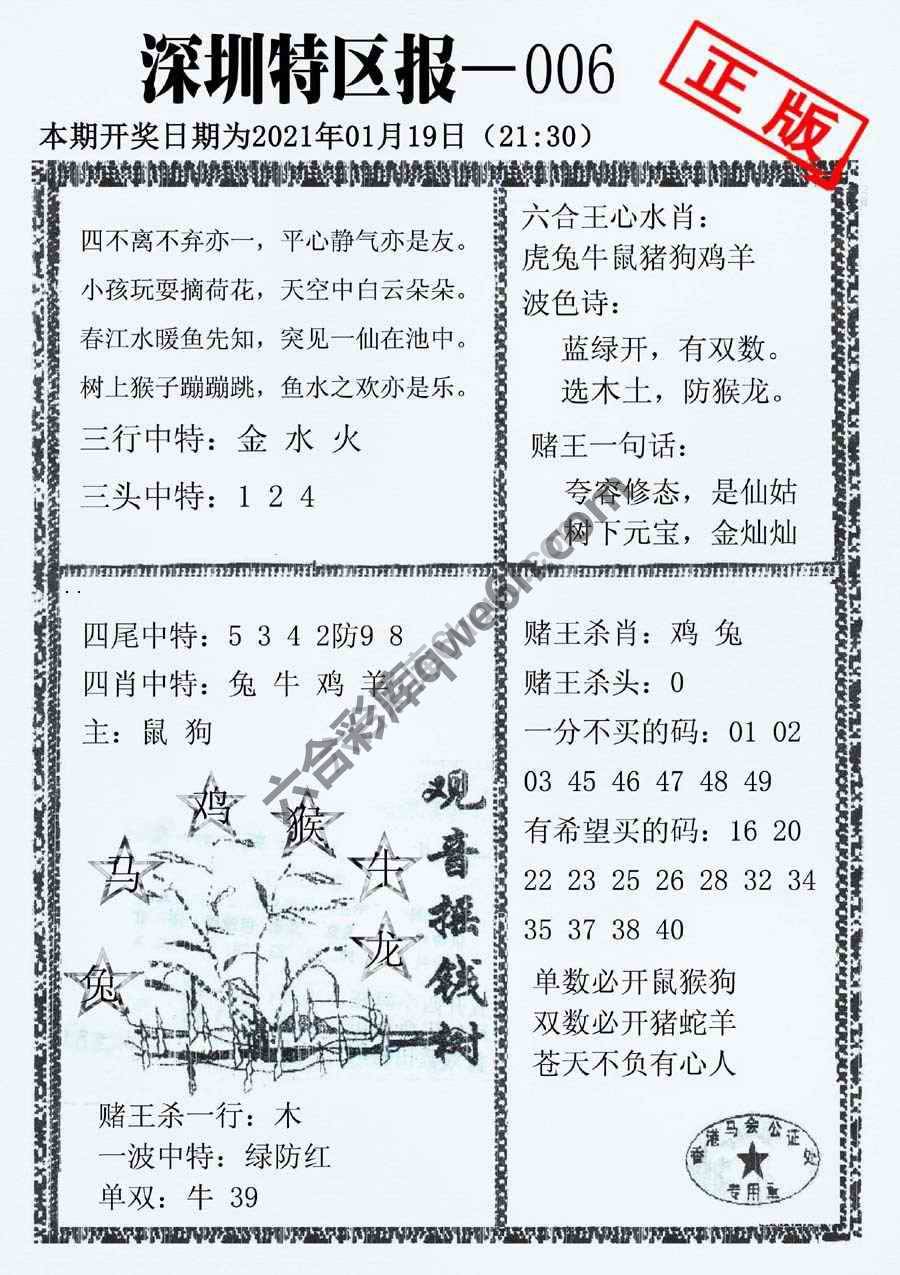 深圳特区报—006
正版
本期开奖日期为2021年01月19日（21:30）
四不离不弃亦一，平心静气亦是友。
小孩玩耍摘荷花，天空中白云朵朵。
春江水暖鱼先知，突见一仙在池中。
树上猴子蹦蹦跳，鱼水之欢亦是乐。
三行中特：金 水 火
三头中特：1 2 4
六合王心水肖：
虎兔牛鼠猪狗鸡羊
波色诗：
蓝绿开，有双数。
选木土，防猴龙。
赌王一句话：
夸容修态，是仙姑
树下元宝，金灿灿
四尾中特：5 3 4 2防9 8
四肖中特：兔 牛 鸡 羊
主：鼠 狗
鸡
猴
马
牛
龙
兔
观音摇钱树
赌王杀一行：木
一波中特：绿防红
单双：牛 39
赌王杀肖：鸡 兔
赌王杀头：0
一分不买的码：01 02
03 45 46 47 48 49
有希望买的码：16 20
22 23 25 26 28 32 34
35 37 38 40
单数必开鼠猴狗
双数必开猪蛇羊
苍天不负有心人
香港马会公证处
专用章
六合彩库qwe6h.com